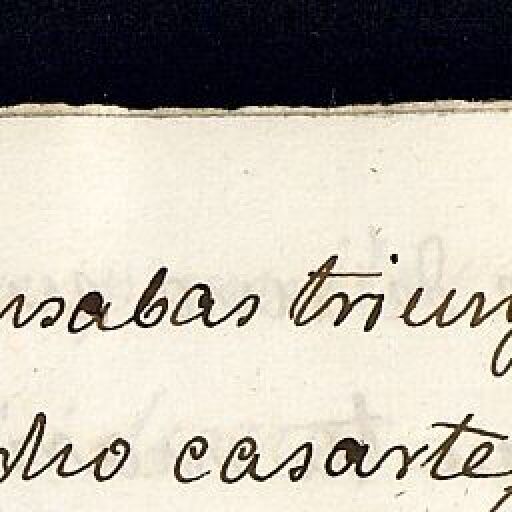 nsabas triun
cho casarte,